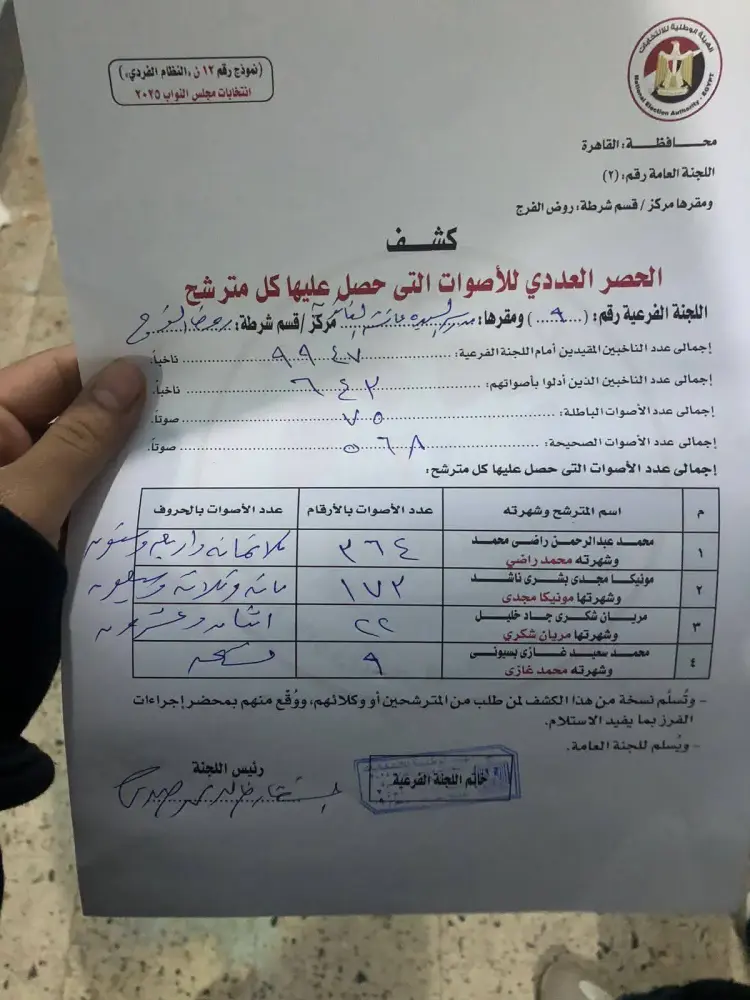 الهيئة الوطنية للانتخابات
National Election Authority - EGYPT
(نموذج رقم ١٢ ن «النظام الفردي»)
انتخابات مجلس النواب ٢٠٢٥
محـــافظـــة: القاهرة
اللجنة العامة رقم: (٢)
ومقرها مركز / قسم شرطة: روض الفرج
كشــف
الحصر العددي للأصوات التى حصل عليها كل مترشح
اللجنة الفرعية رقم: (...٩...) ومقرها: السيدة عائشة مركز /قسم شرطة: روض الفرج
إجمالى عدد الناخبين المقيدين أمام اللجنة الفرعية: ٩٩٤٧ ناخباً.
إجمالى عدد الناخبين الذين أدلوا بأصواتهم: ٦٤٣ ناخباً.
إجمالى عدد الأصوات الباطلة: ٧٥ صوتاً.
إجمالى عدد الأصوات الصحيحة: ٥٦٨ صوتاً.
إجمالى عدد الأصوات التى حصل عليها كل مترشح:
م اسم المترشح وشهرته عدد الأصوات بالأرقام عدد الأصوات بالحروف
١ محمد عبدالرحمن راضى محمد وشهرته محمد راضي ٣٦٤ ثلاثمائة واربعة وستون
٢ مونيكا مجدى بشرى ناشد وشهرتها مونيكا مجدى ١٧٣ مائة وثلاثة وسبعون
٣ مريان شكرى جاد خليل وشهرتها مريان شكري ٢٢ اثنان وعشرون
٤ محمد سعيد غازى بسيونى وشهرته محمد غازى ٩ تسعة
- وتُسلَّم نسخة من هذا الكشف لمن طلب من المترشحين أو وكلائهم، ووُقّع منهم بمحضر إجراءات
الفرز بما يفيد الاستلام.
- ويُسلم للجنة العامة.
رئيس اللجنة
خاتم اللجنة الفرعية
مستشار خالد